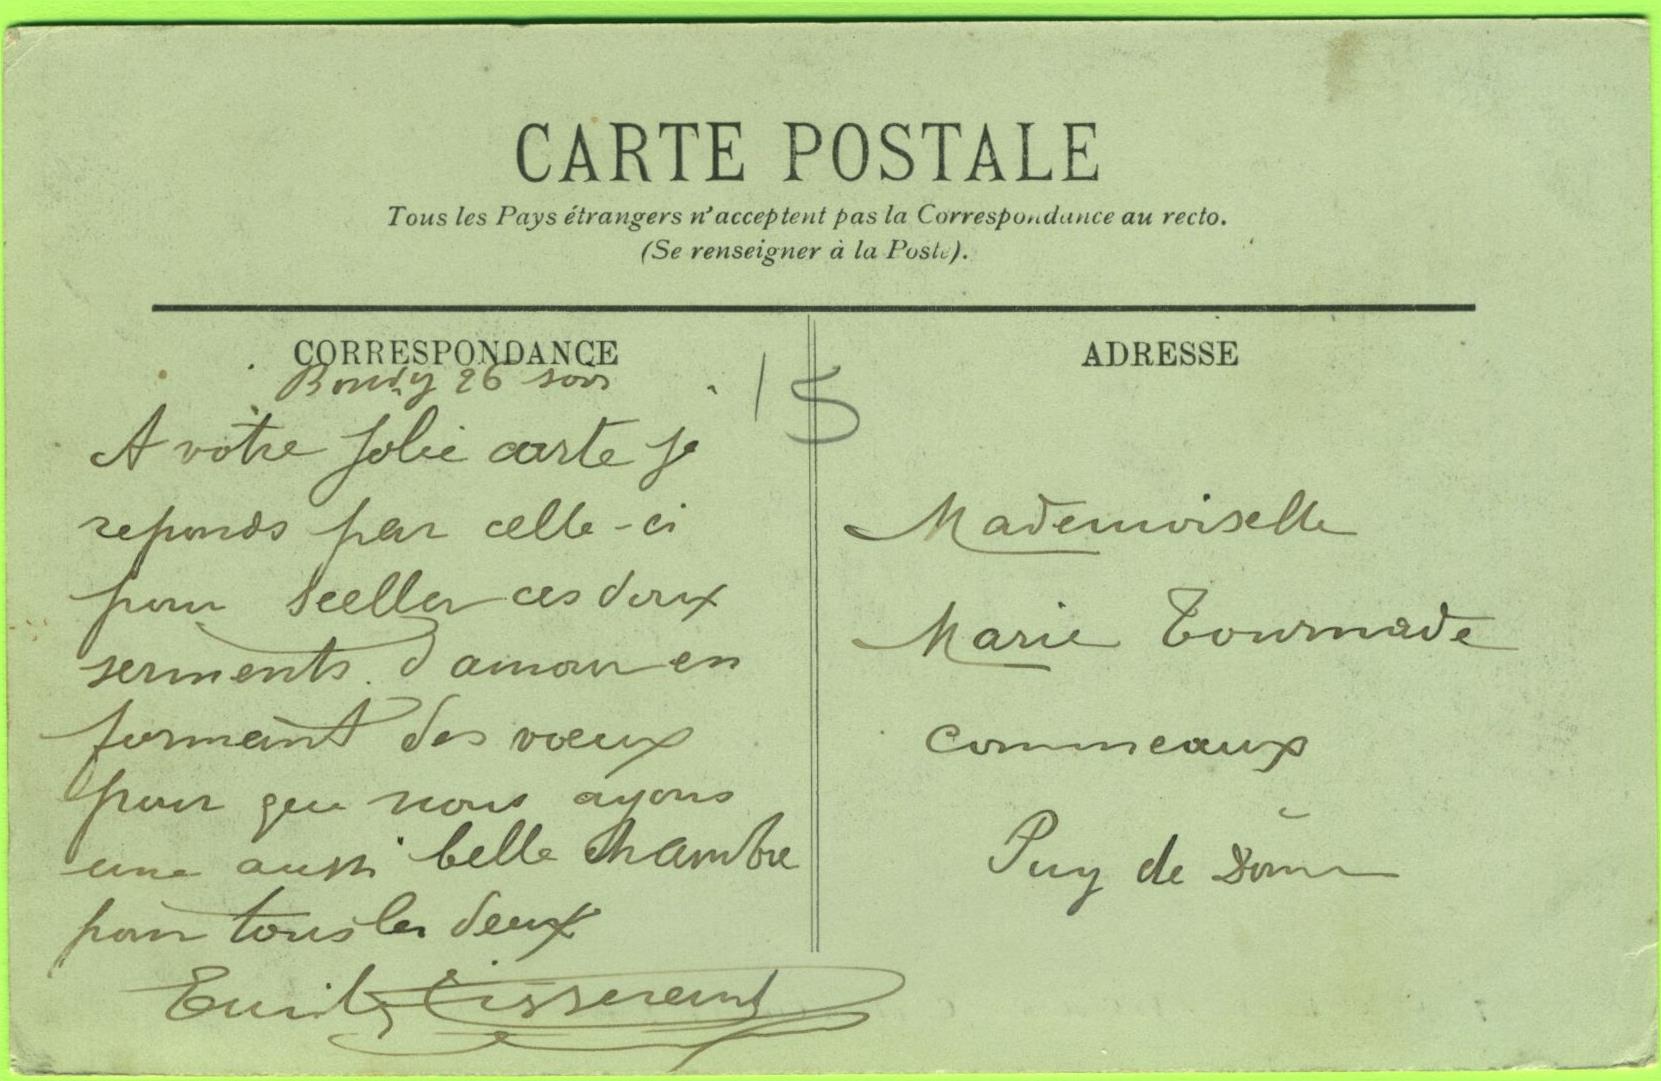 CARTE POSTALE
Tous les Pays étrangers n'acceptent pas la Correspondance au recto.
(Se renseigner à la Poste).
CORRESPONDANCE
Bondy 26 soir
A votre jolie carte je
reponds par celle-ci
pour sceller ces doux
serments d'amour en
formant des vœux
pour que nous ayons
une aussi belle chambre
pour tous les deux
Emile Tisserand
15
ADRESSE
Mademoiselle
Marie Tournade
Commeaux
Puy de Dôme